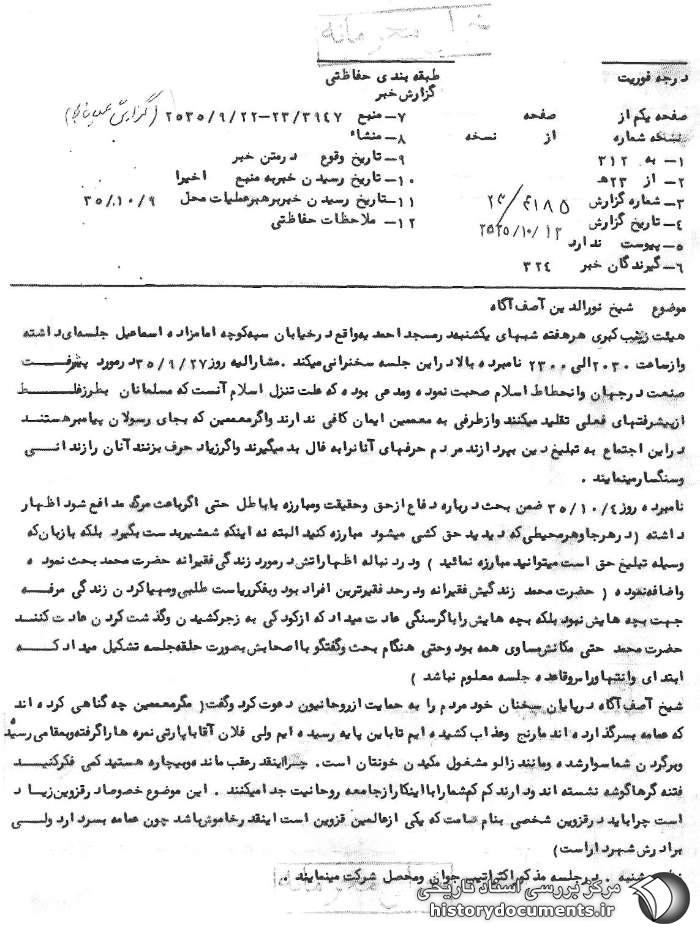 درجه فوریت
طبقه بندی حفاظتی
گزارش خبر
صفحه یکم از صفحه
نسخه شماره از نسخه
۱- به ۳۱۲
۲- از ۲۳ه
۳- شماره گزارش
۴- تاریخ گزارش ۲۵۳۵/۱۰/۱۲
۵- پیوست ندارد
۶- گیرندگان خبر ۳۲۴
۷- منبع ۳۹۴۷/۲۳-۲۵۳۵/۹/۲۲
۸- منشاء
۹- تاریخ وقوع درمتن خبر
۱۰- تاریخ رسیدن خبربه منبع اخیرا
۱۱- تاریخ رسیدن خبربرهبرعملیات محل ۳۵/۱۰/۹
۱۲- ملاحظات حفاظتی
موضوع شیخ نورالدین آصف آگاه
هیئت زینب کبری هرهفته شبهای یکشنبه درمسجد احمدیه واقع درخیابان سپه کوچه امامزاده اسماعیل جلسه ای داشته
وازساعت ۲۰۳۰ الی ۲۳۰۰ نامبرده بالا دراین جلسه سخنرانی میکند . مشارالیه روز ۳۵/۹/۲۷ درمورد پیشرفت
صنعت درجهان وانحطاط اسلام صحبت نموده ومدعی بوده که علت تنزل اسلام آنست که مسلمانان بطرزغلط
ازپیشرفتهای فعلی تقلید میکنند وازطرفی به معممین ایمان کافی ندارند واگرمعممین که بجای رسولان پیامبرهستند
دراین اجتماع به تبلیغ دین بپردازند مردم حرفهای آنانرابه فال بد میگیرند واگرزیاد حرف بزنند آنان رازندانی
وسنگسارمینمایند .
نامبرده روز ۳۵/۱۰/۴ ضمن بحث درباره دفاع ازحق وحقیقت ومبارزه باباطل حتی اگرباعث مرگ مدافع شود اظهار
داشته ( درهرجاوهرمحیطی که دیدید حق کشی میشود مبارزه کنید البته نه اینکه شمشیربدست بگیرد بلکه بازبان که
وسیله تبلیغ حق است میتوانید مبارزه نمائید ) ودردنباله اظهاراتش درمورد زندگی فقیرانه حضرت محمد بحث نموده
واضافه نموده ( حضرت محمد زندگیش فقیرانه ودرحد فقیرترین افراد بود وبفکرریاست طلبی ومهیاکردن زندگی مرفه
جهت بچه هایش نبود بلکه بچه هایش راباگرسنگی عادت میداد که ازکودکی به زجرکشیدن وگذشت کردن عادت کنند
حضرت محمد حتی مکانش مساوی همه بود وحتی هنگام بحث وگفتگو با اصحابش بصورت حلقه جلسه تشکیل میداد که
ابتدای وانتها وراس وقاعده جلسه معلوم نباشد )
شیخ آصف آگاه درپایان سخنان خود مردم را به حمایت ازروحانیون دعوت کرد وگفت ( مگرمعممین چه گناهی کرده اند
که عمامه بسرگذارده اند مارنج وعذاب کشیده ایم تاباین پایه رسیده ایم ولی فلان آقاباپارتی نمره هاراگرفته وبمقامی رسیده
وبرگردن شماسوارشده ومانند زالو مشغول مکیدن خونتان است . چرااینقدرعقب مانده وبیچاره هستید کمی فکرکنید
فتنه گرهاگوشه نشسته اند ودارند کم کم شماراباابنکارازجامعه روحانیت جدامیکنند . این موضوع خصوصادرقزوین زیاد
است چراباید درقزوین شخصی بنام صامت که یکی ازعالمین قزوین است اینقدرخاموش باشد چون عمامه بسردارد ولی
برادرش شهرداراست )
شنبه . درجلسه مذکوراکثراتیپ جوان ومحصل شرکت مینمایند .
مرکز بررسی اسناد تاریخی
historydocuments.ir